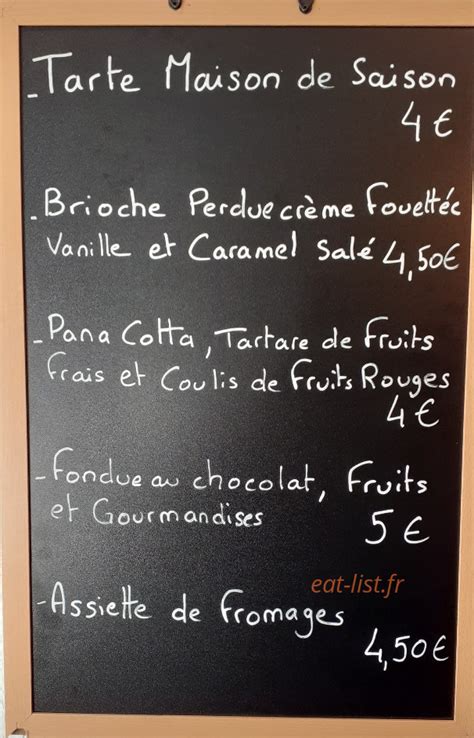 - Tarte Maison de Saison
4 €
- Brioche Perdue crème Fouettée
Vanille et Caramel Salé 4,50€
- Pana Cotta, Tartare de Fruits
Frais et Coulis de Fruits Rouges
4 €
- Fondue au chocolat, Fruits
et Gourmandises 5 €
eat-list.fr
- Assiette de Fromages
4,50€